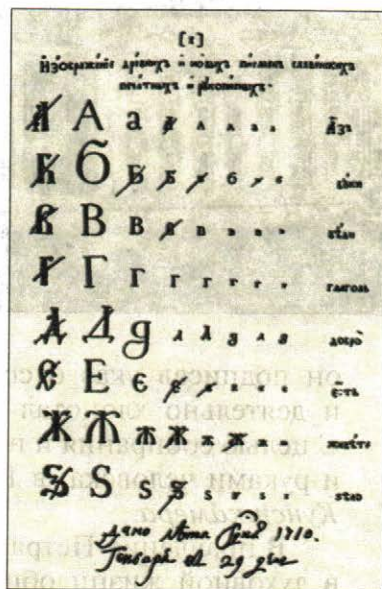 [1]
Изображенїе древнихъ и новыхъ писменъ славенскихъ
печатныхъ и рукописныхъ.
А А а а а а а а азъ
Б Б Б Б Б б б б буки
В В В В В в в в вѣди
Г Г Г Г Г г г г глаголь
Д Д д д д д д д добро
Є Е є є є є є є есть
Ж Ж Ж Ж ж ж ж живѣте
Ѕ Ѕ Ѕ Ѕ ѕ ѕ ѕ ѕ ѕѣло
дано лѣта Гдня 1710.
Генваря въ 29 день